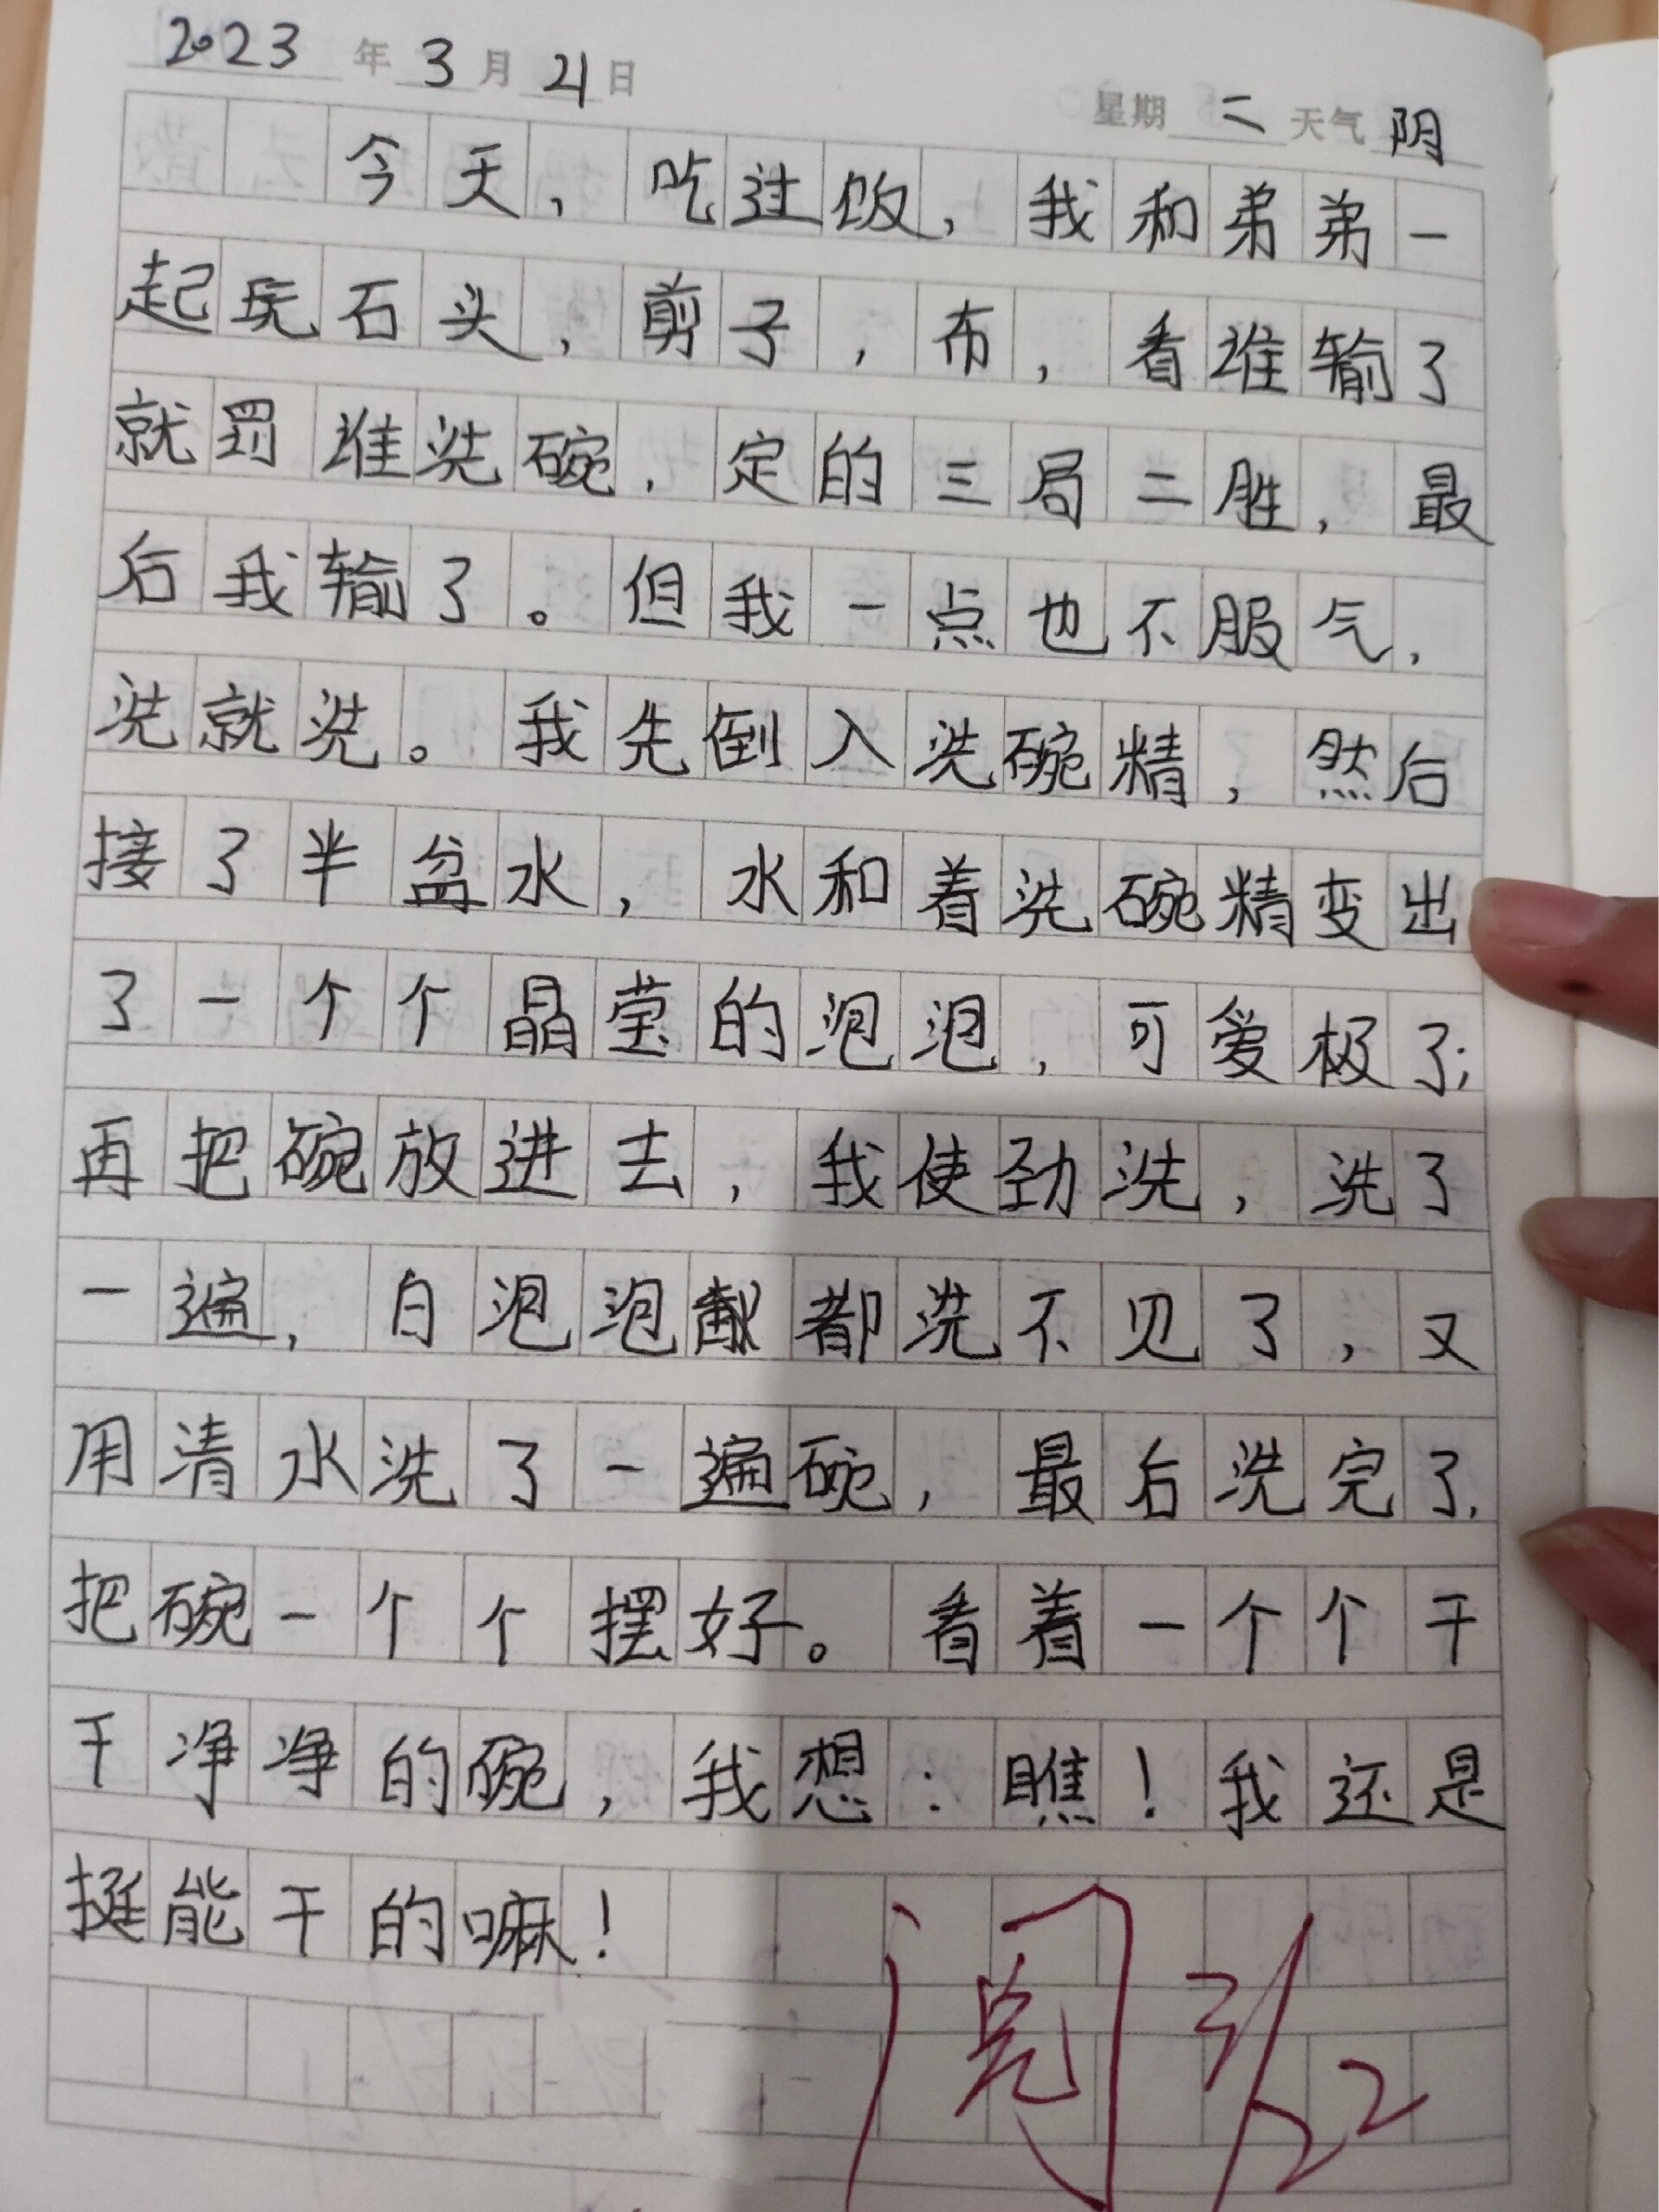 2023年3月21日 星期二 天气阴
今天，吃过饭，我和弟弟一
起玩石头，剪子，布，看谁输了
就罚谁洗碗，定的三局二胜，最
后我输了。但我一点也不服气，
洗就洗。我先倒入洗碗精，然后
接了半盆水，水和着洗碗精变出
了一个个晶莹的泡泡，可爱极了；
再把碗放进去，我使劲洗，洗了
一遍，白泡泡都洗不见了，又
用清水洗了一遍碗，最后洗完了，
把碗一个个摆好。看着一个个干
干净净的碗，我想：瞧！我还是
挺能干的嘛！
阅 3/22